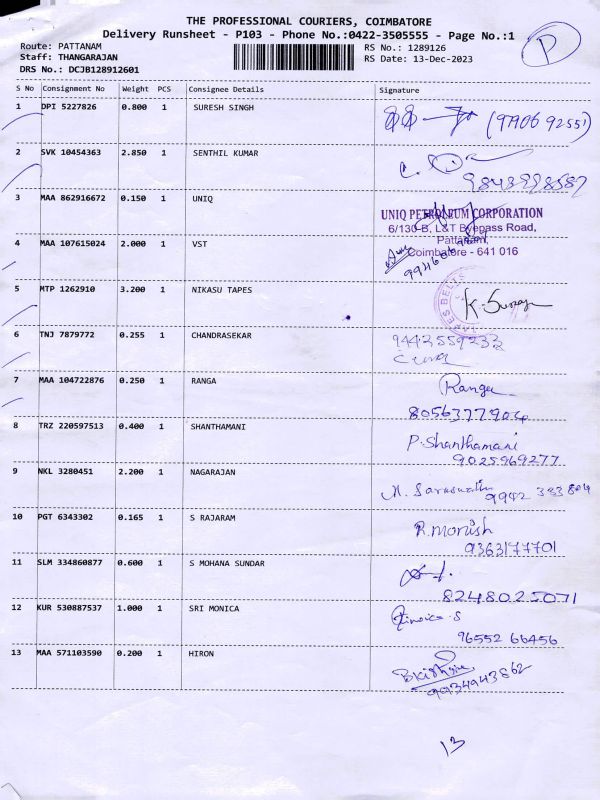 THE PROFESSIONAL COURIERS, COIMBATORE
Delivery Runsheet - P103 - Phone No.:0422-3505555 - Page No.:1
P
Route: PATTANAM
RS No.: 1289126
Staff: THANGARAJAN
RS Date: 13-Dec-2023
DRS No.: DCJB128912601
S No Consignment No Weight PCS Consignee Details Signature
1 DPI 5227826 0.800 1 SURESH SINGH
2 SVK 10454363 2.850 1 SENTHIL KUMAR
3 MAA 862916672 0.150 1 UNIQ
UNIQ PETROLEUM CORPORATION
6/130-B, L&T Byepass Road,
Pattanam,
Coimbatore - 641 016
4 MAA 107615024 2.000 1 VST
5 MTP 1262910 3.200 1 NIKASU TAPES
6 TNJ 7879772 0.255 1 CHANDRASEKAR 9442559233
7 MAA 104722876 0.250 1 RANGA Ranga
8056377904
8 TRZ 220597513 0.400 1 SHANTHAMANI P. Shanthamani
9025969277
9 NKL 3280451 2.200 1 NAGARAJAN
10 PGT 6343302 0.165 1 S RAJARAM R. Monish
9363177701
11 SLM 334860877 0.600 1 S MOHANA SUNDAR
8248025071
12 KUR 530887537 1.000 1 SRI MONICA
96552 66456
13 MAA 571103590 0.200 1 HIRON
13